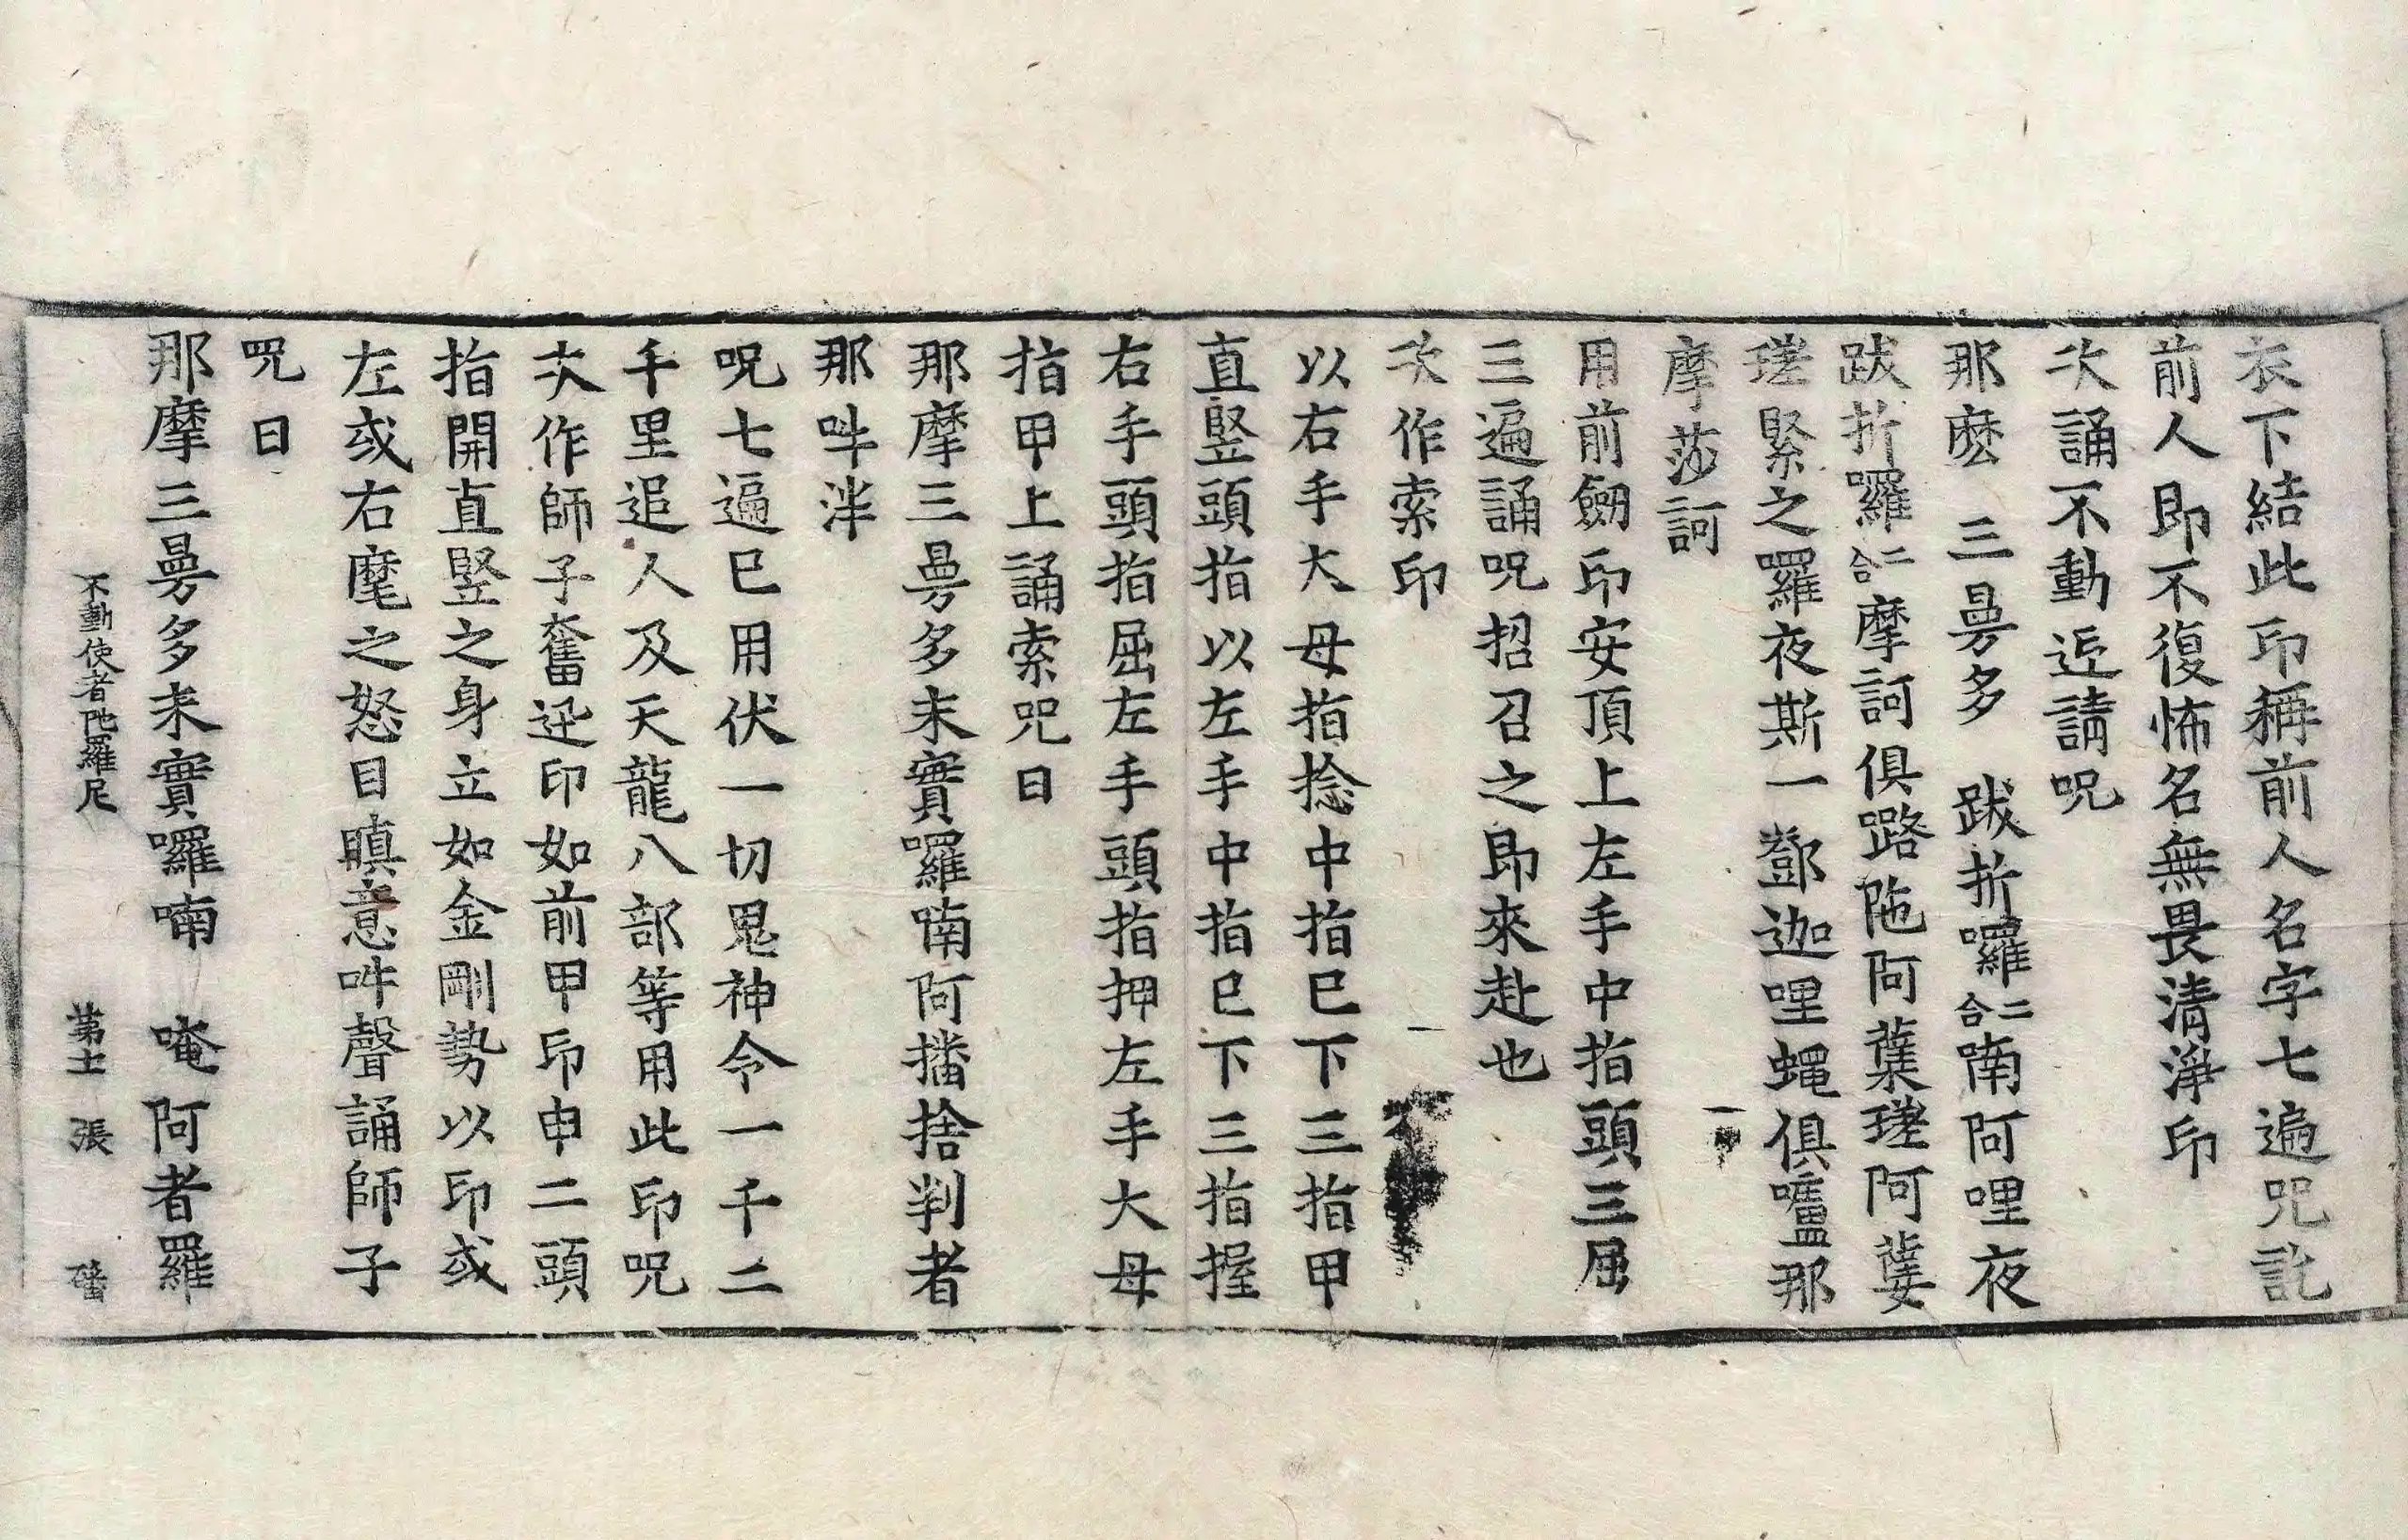 衣下結此印稱前人名字七遍咒訖
前人即不復怖名無畏清淨印
次誦不動近請呪
那麽 三曼多 跋折囉二合喃阿哩夜
跋折囉二合摩訶俱嚕陁阿葉瑳阿葉
瑳緊之囉夜斯一鄧迦哩蠅俱嚧那
摩莎訶
用前劒印安頂上左手中指頭三屈
三遍誦呪招召之即來赴也
次作索印
以右手大母指捻中指已下三指甲
直竪頭指以左手中指已下三指握
右手頭指屈左手頭指押左手大母
指甲上誦索咒曰
那摩三曼多末實囉喃阿播捨判者
那吽泮
呪七遍已用伏一切鬼神令一千二
千里追人及天龍八部等用此印呪
次作師子奮迅印如前甲印申二頭
指開直竪之身立如金剛勢以印或
左或右麾之怒目瞋意吽聲誦師子
咒曰
那摩三曼多末實囉喃 唵阿者羅
不動使者陁羅尼 第十一張